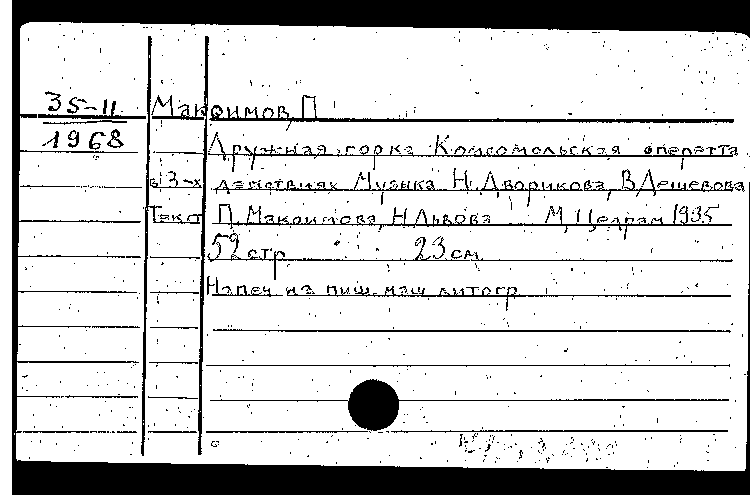 35-11
1968
Максимов, П.
Дружная горка Комсомольская оперетта
в 3-х действиях Музыка Н. Дворикова, В. Дешевова
Текст П. Максимова, Н. Львова М, Цедрам 1935
52 стр 23 см
Напеч на пиш. маш литогр